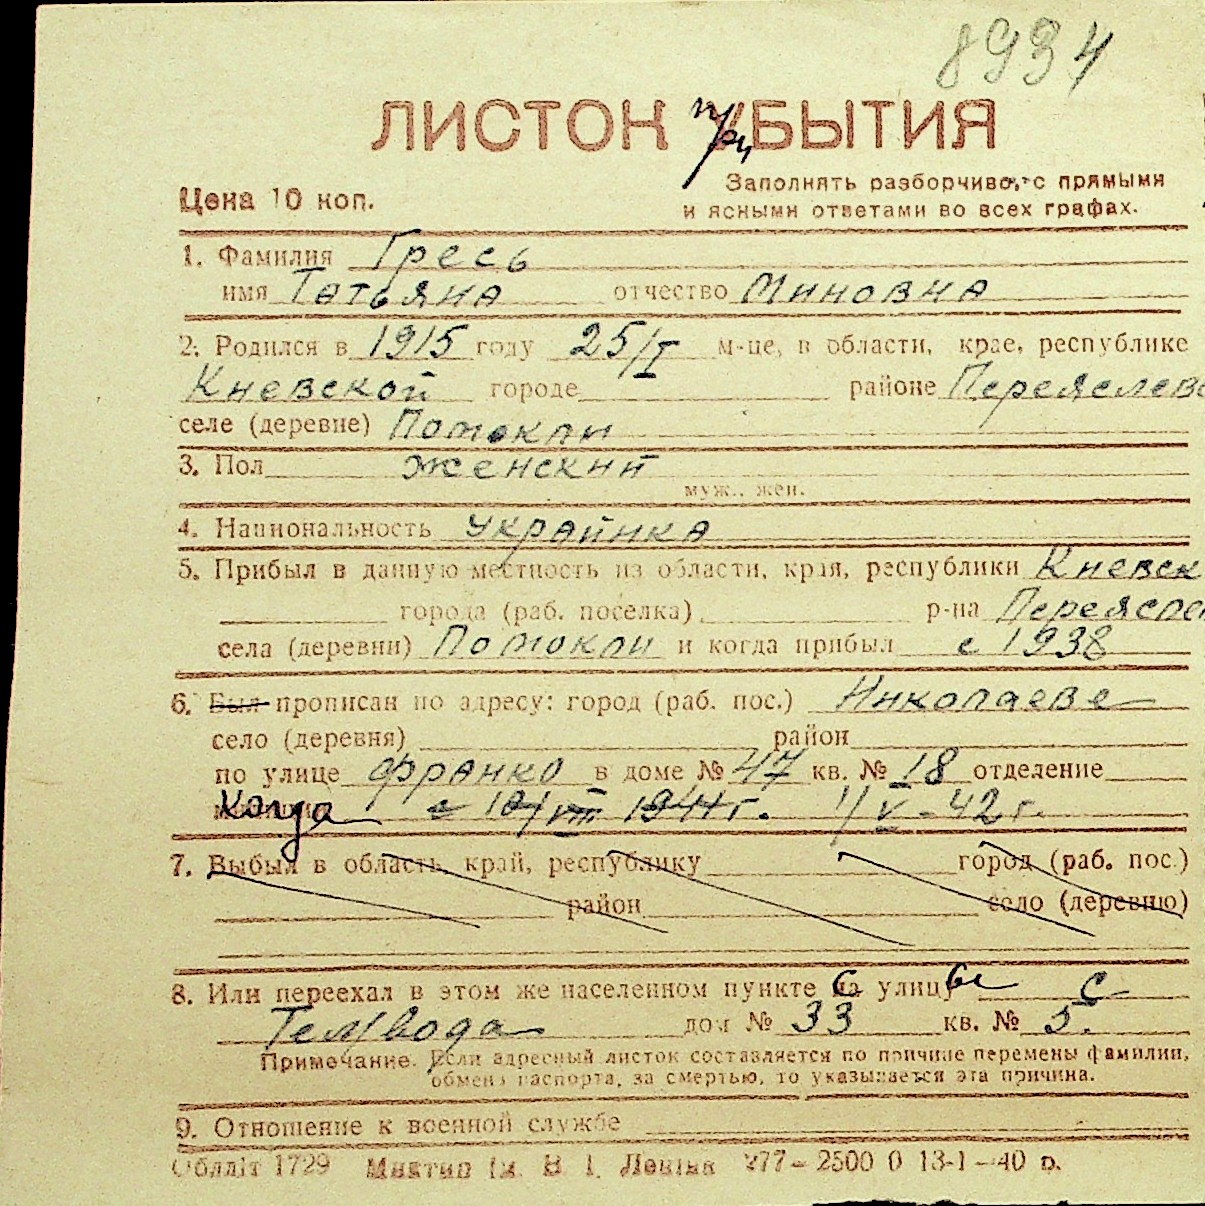 8934
ЛИСТОК при УБЫТИЯ
Цена 10 коп.
Заполнять разборчиво, с прямыми
и ясными ответами во всех графах.
1. Фамилия Гресь
имя Татьяна отчество Миновна
2. Родился в 1915 году 25/I м-це, в области, крае, республике
Киевской городе районе Переяслевс
селе (деревне) Помокли
3. Пол женский
муж., жен.
4. Национальность украинка
5. Прибыл в данную местность из области, края, республики Киевск
города (раб. поселка) р-на Переяслев
села (деревни) Помокли и когда прибыл с 1938
6. Был прописан по адресу: город (раб. пос.) Николаеве
село (деревня) район
по улице Франко в доме № 47 кв. № 18 отделение
Когда с 10/VIII 1941 г. 1/V-42 г.
7. Выбыл в область, край, республику город (раб. пос.)
район село (деревню)
8. Или переехал в этом же населенном пункте с улицы С
Темвода дом № 33 кв. № 5.
Примечание. Если адресный листок составляется по причине перемены фамилии,
обмена паспорта, за смертью, то указывается эта причина.
9. Отношение к военной службе
Облліт 1729 ім. В. І. Леніна 277—2500 0 13-1—40 р.